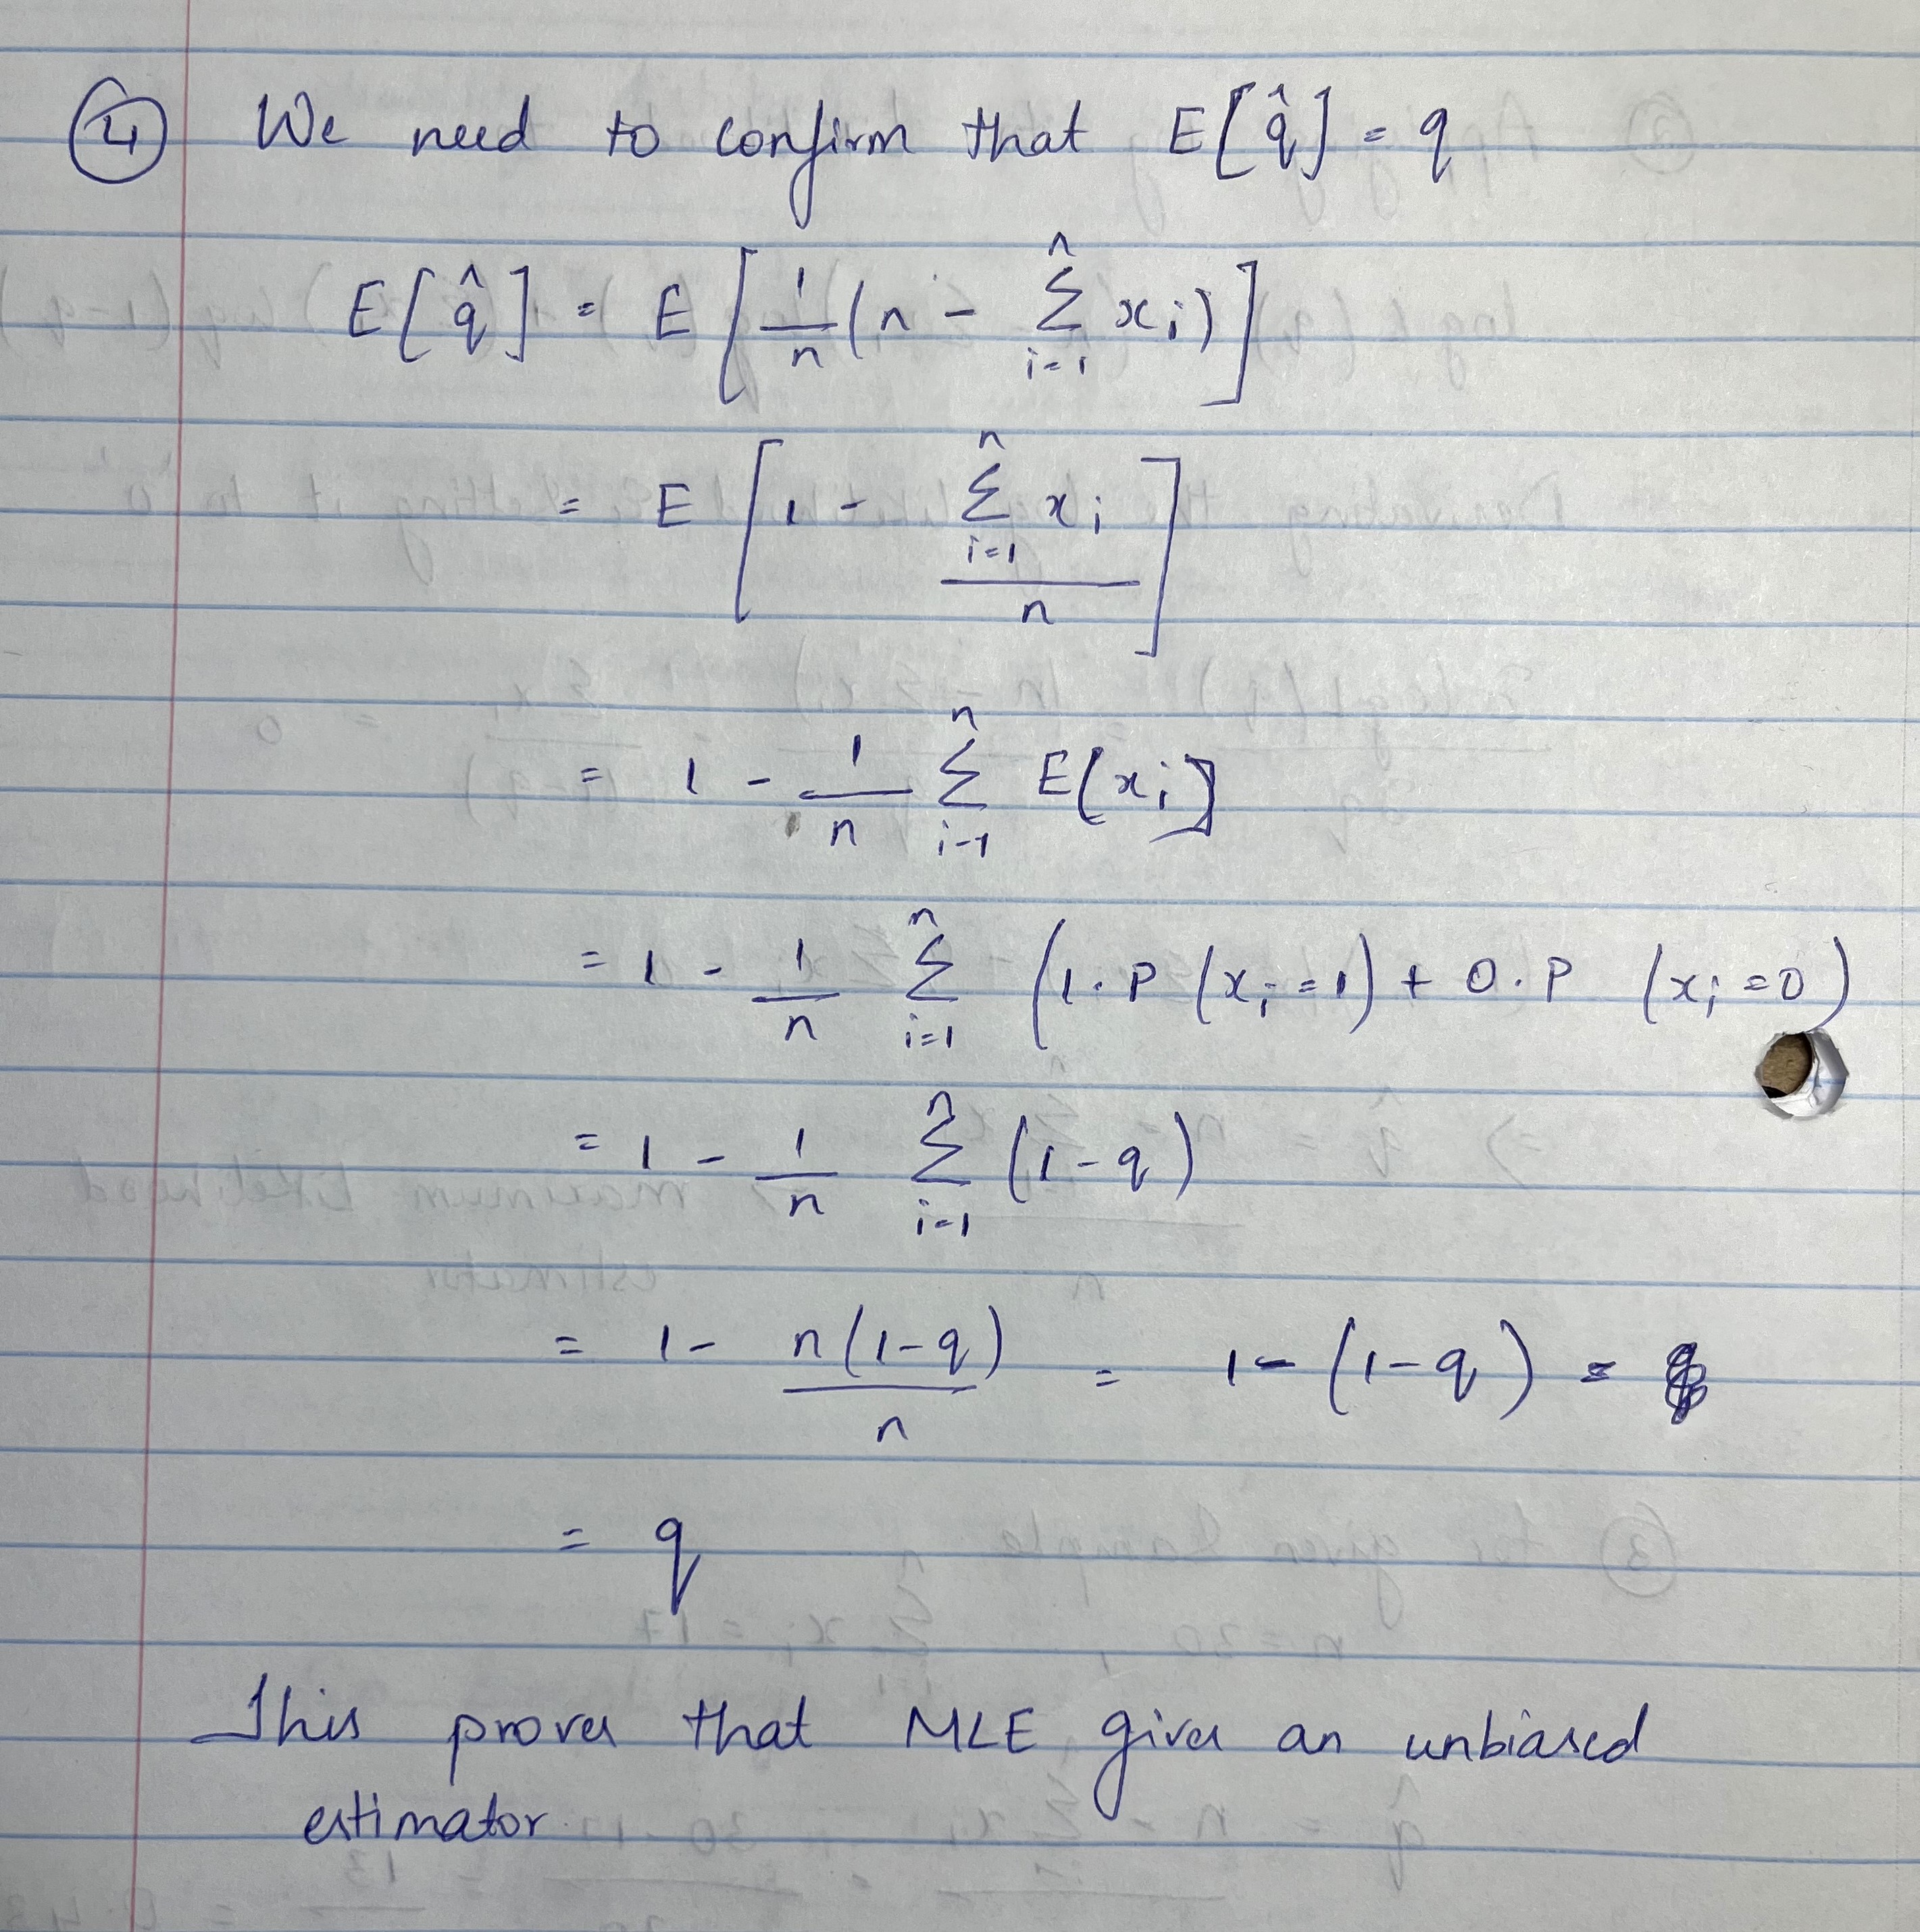 ④ We need to confirm that E[q̂] = q
E[q̂] = E[1/n (n - Σ_{i=1}^{n} x_i)]
= E[1 - (Σ_{i=1}^{n} x_i)/n]
= 1 - 1/n Σ_{i=1}^{n} E[x_i]
= 1 - 1/n Σ_{i=1}^{n} (1.P(x_i=1) + 0.P (x_i=0)
= 1 - 1/n Σ_{i=1}^{n} (1-q)
= 1 - n(1-q)/n = 1 - (1-q) =
= q
This proves that MLE gives an unbiased
estimator